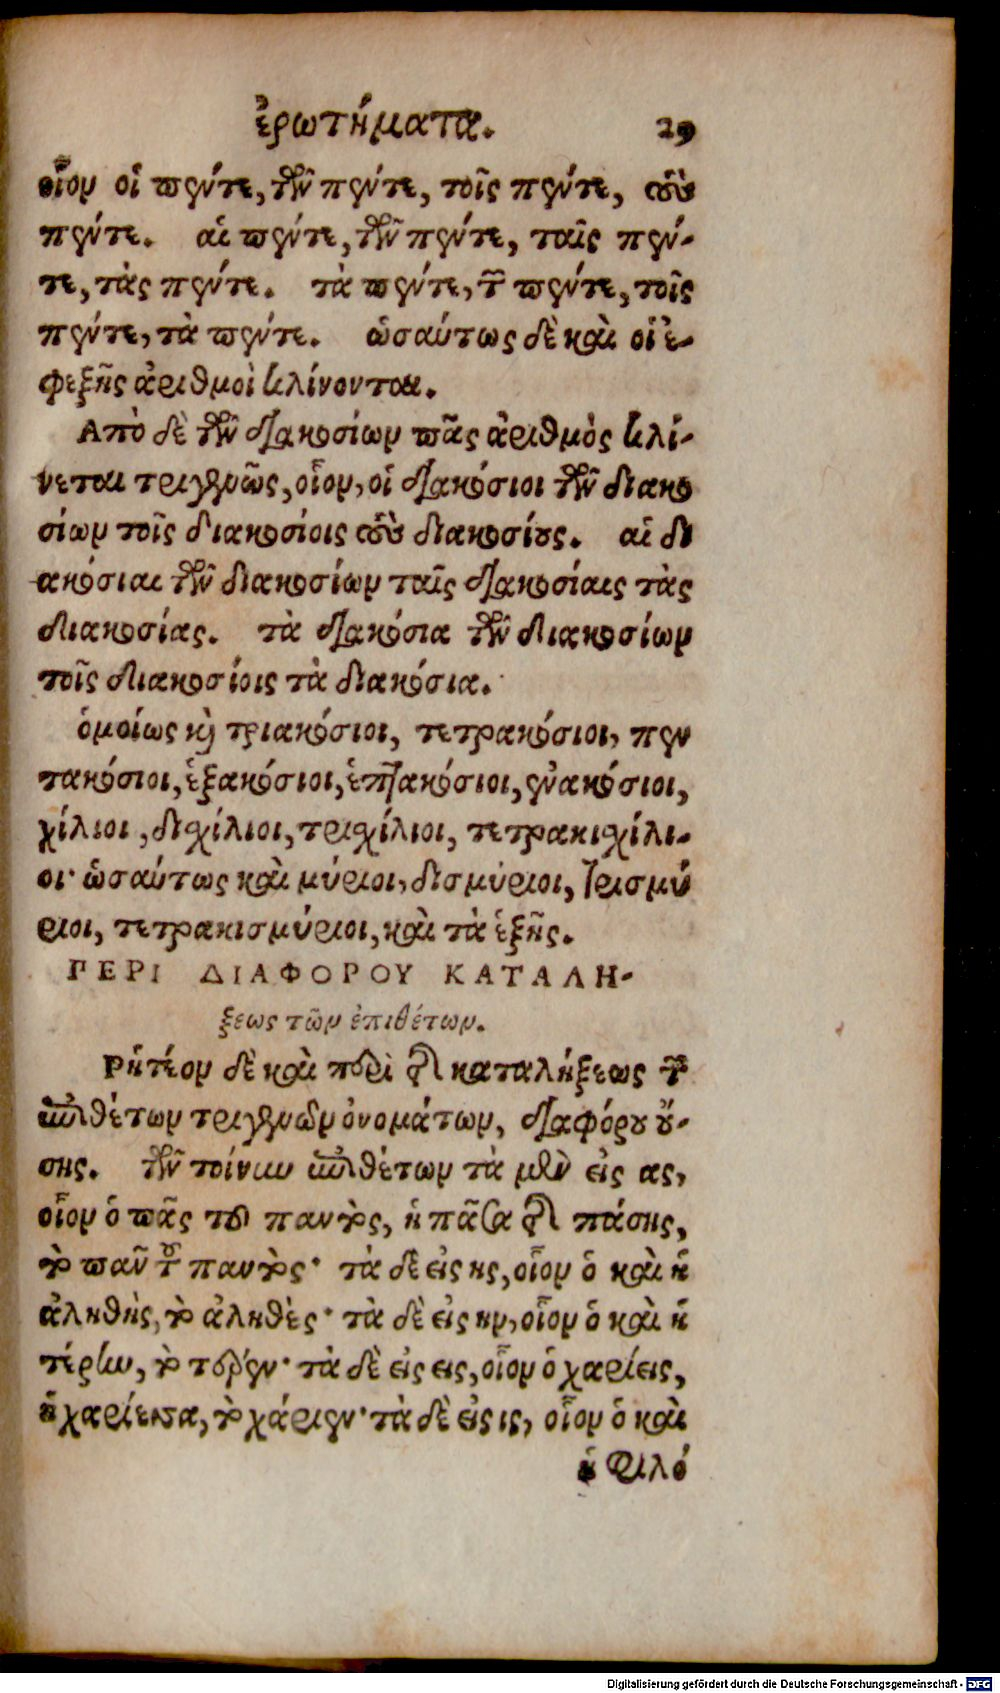 ἐρωτήματα. 29
οἷον οἱ πέντε, τῶν πέντε, τοῖς πέντε, τοὺς
πέντε. αἱ πέντε, τῶν πέντε, ταῖς πέν-
τε, τὰς πέντε. τὰ πέντε, τῶν πέντε, τοῖς
πέντε, τὰ πέντε. ὡσαύτως δὲ καὶ οἱ ἐ-
φεξῆς ἀριθμοὶ κλίνονται.
Απὸ δὲ τῶν διακοσίων πᾶς ἀριθμὸς κλί-
νεται τριγενῶς, οἷον, οἱ διακόσιοι τῶν διακο
σίων τοῖς διακοσίοις τοὺς διακοσίους. αἱ δι
ακόσιαι τῶν διακοσίων ταῖς διακοσίαις τὰς
διακοσίας. τὰ διακόσια τῶν διακοσίων
τοῖς διακοσίοις τὰ διακόσια.
ὁμοίως καὶ τριακόσιοι, τετρακόσιοι, πεν
τακόσιοι, ἑξακόσιοι, ἑπτακόσιοι, ἐνακόσιοι,
χίλιοι, διχίλιοι, τριχίλιοι, τετρακιχίλι-
οι· ὡσαύτως καὶ μύριοι, δισμύριοι, τρισμύ
ριοι, τετρακισμύριοι, καὶ τὰ ἑξῆς.
ΠΕΡΙ ΔΙΑΦΟΡΟΥ ΚΑΤΑΛΗ-
ξεως τῶν ἐπιθέτων.
Ρητέον δὲ καὶ περὶ τῆς καταλήξεως τῶν
ἐπιθέτων τριγενῶν ὀνομάτων, διαφόρου οὔ-
σης. τῶν τοίνυν ἐπιθέτων τὰ μὲν εἰς ας,
οἷον ὁ πᾶς τοῦ παντὸς, ἡ πᾶσα τῆς πάσης,
τὸ πᾶν τοῦ παντὸς· τὰ δὲ εἰς ης, οἷον ὁ καὶ ἡ
ἀληθὴς, τὸ ἀληθὲς· τὰ δὲ εἰς ην, οἷον ὁ καὶ ἡ
τέρην, τὸ τέρεν· τὰ δὲ εἰς εις, οἷον ὁ χαρίεις,
ἡ χαρίεσσα, τὸ χάριεν· τὰ δὲ εἰς ις, οἷον ὁ καὶ
ἡ φιλό
Digitalisierung gefördert durch die Deutsche Forschungsgemeinschaft - DFG